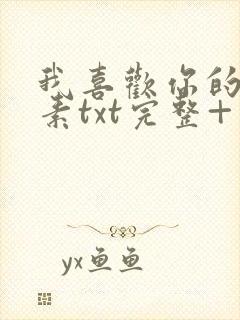 我喜歡你的
素txt完整+
yx鱼鱼